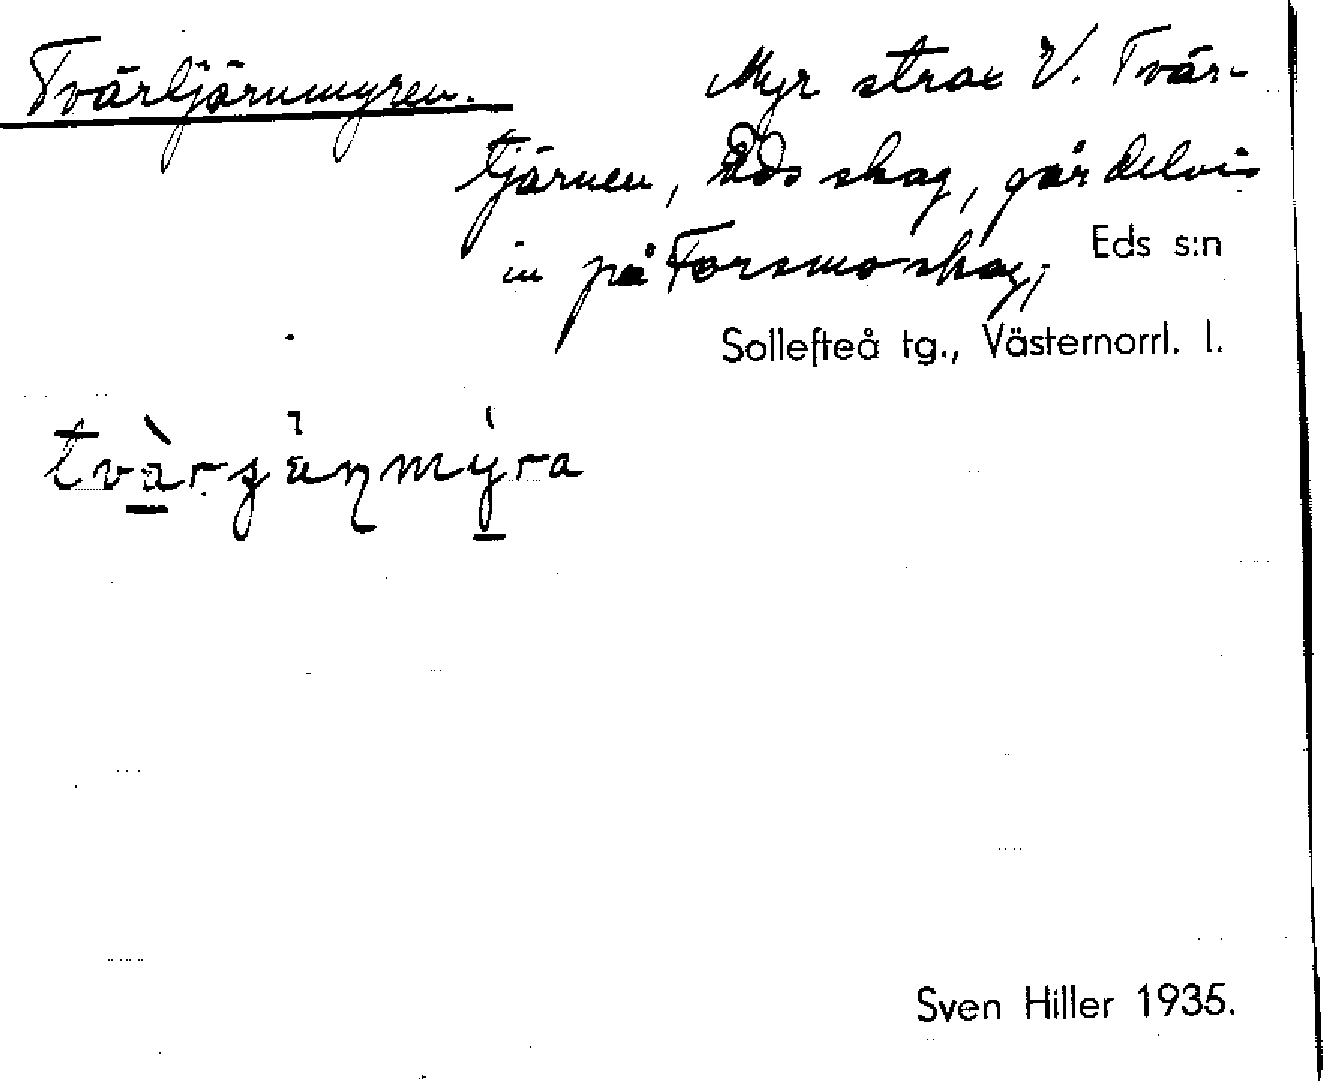 Tvärtjärnmyren. Myr strax V. Tvär-
tjärnen, Eds skog, går delvis
in på Forsmo skog,
Eds s:n
Sollefteå tg., Västernorrl. l.
Sven Hiller 1935.